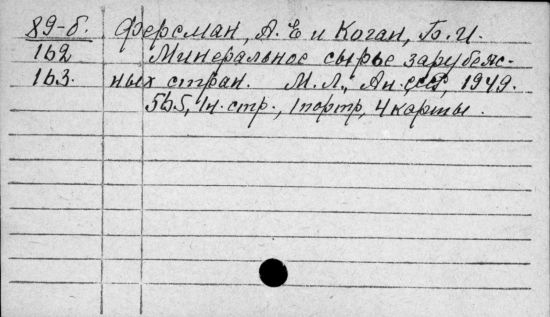 89-б. Ферсман, А. Е и Коган, Б. И.
162 Минеральное сырье зарубеж-
163. ных стран. М. Л., Ан СССР, 1949.
565, 1н. стр., 1 портр, 4 карты.